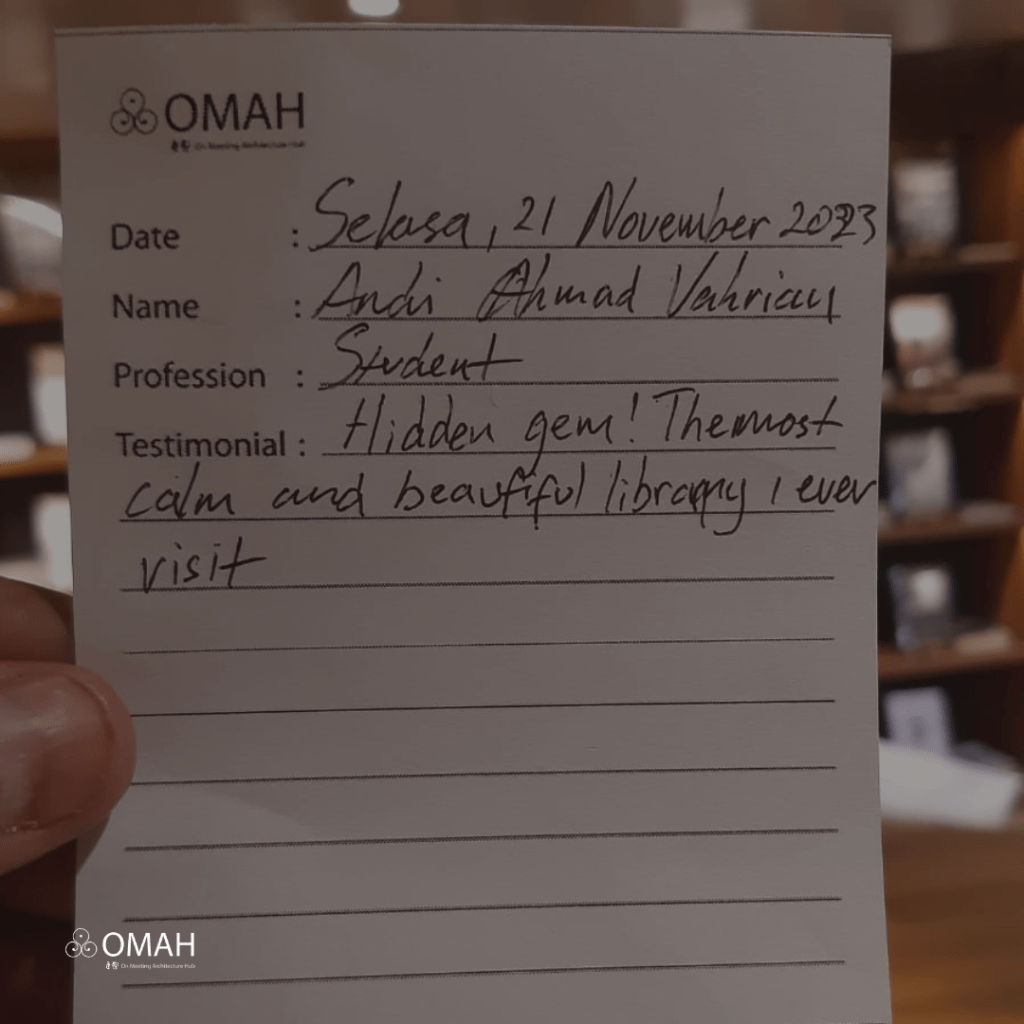 OMAH
On Meeting Architecture Hub
Date : Selasa, 21 November 2023
Name : Andi Ahmad Vahriauy
Profession : Student
Testimonial : Hidden gem! The most
calm and beautiful library I ever
visit
OMAH
On Meeting Architecture Hub